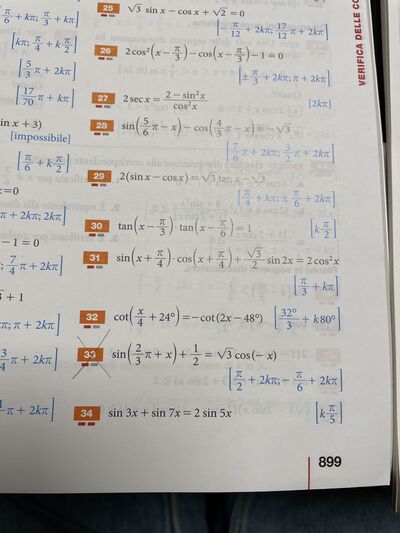 π/6 + kπ; π/3 + kπ]
[kπ; π/4 + k π/2]
[5/3 π + 2kπ]
[17/70 π + kπ]
in x + 3)
[impossibile]
[π/6 + k π/2]
x = 0
π + 2kπ; 2kπ]
− 1 = 0
; 7/4 π + 2kπ]
+ 1
π; π + 2kπ]
3/4 π + 2kπ]
π + 2kπ]
25 √3 sin x − cos x + √2 = 0
[−π/12 + 2kπ; 17/12 π + 2kπ]
26 2cos²(x − π/3) − cos(x − π/3) − 1 = 0
[± π/3 + 2kπ; π + 2kπ]
27 2 sec x = (2 − sin²x)/cos²x [2kπ]
28 sin(5/6 π − x) − cos(4/3 π − x) = −√3
[7/6 π + 2kπ; 3/2 π + 2kπ]
29 2(sin x − cos x) = √3 tan x − √3
[π/4 + kπ; ± π/6 + 2kπ]
30 tan(x − π/3) · tan(x − π/6) = 1 [k π/2]
31 sin(x + π/4) · cos(x + π/4) + √3/2 sin 2x = 2 cos²x
[π/3 + kπ]
32 cot(x/4 + 24°) = −cot(2x − 48°) [32°/3 + k80°]
33 sin(2/3 π + x) + 1/2 = √3 cos(−x)
[π/2 + 2kπ; −π/6 + 2kπ]
34 sin 3x + sin 7x = 2 sin 5x [k π/5]
899
VERIFICA DELLE CO